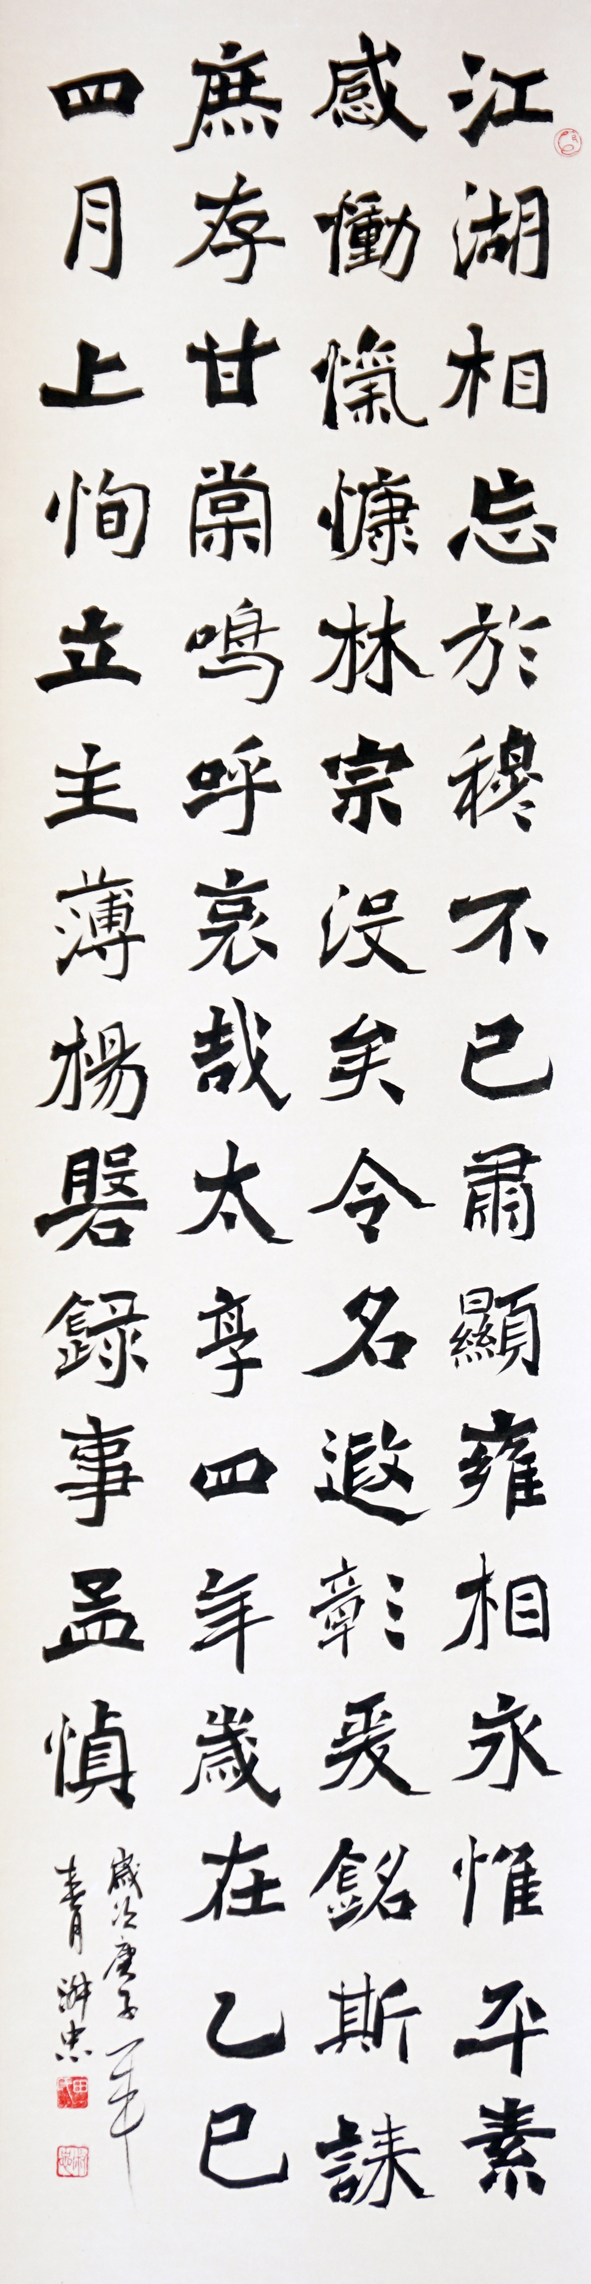 江湖相忘於穆不已肅顯雍相永惟平素
感慟愾慷林宗没矣令名遐彰爰銘斯誄
庶存甘棠鳴呼哀哉太亨四年歲在乙巳
四月上恂立主薄楊磐錄事孟慎
歲次庚子年
春月淋忠